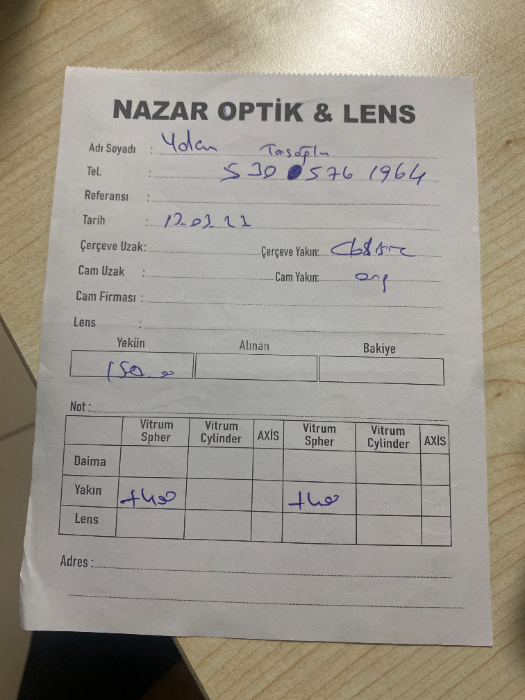 NAZAR OPTİK & LENS
Adı Soyadı : Taşoğlu
Tel. : 530 576 1964
Referansı :
Tarih :
Çerçeve Uzak: Çerçeve Yakın:
Cam Uzak : Cam Yakın: org
Cam Firması :
Lens :
Yekün Alınan Bakiye
Not :
Vitrum Spher Vitrum Cylinder AXİS Vitrum Spher Vitrum Cylinder AXİS
Daima
Yakın +400 +400
Lens
Adres :